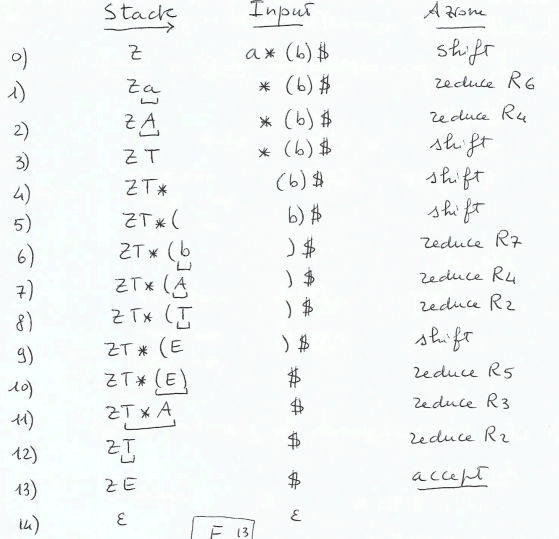 Stack Input Azione
0) Z a * (b) $ shift
1) Za * (b) $ reduce R6
2) ZA * (b) $ reduce R4
3) ZT * (b) $ shift
4) ZT* (b) $ shift
5) ZT*( b) $ shift
6) ZT*(b ) $ reduce R7
7) ZT*(A ) $ reduce R4
8) ZT*(T ) $ reduce R2
9) ZT*(E ) $ shift
10) ZT*(E) $ reduce R5
11) ZT*A $ reduce R3
12) ZT $ reduce R2
13) ZE $ accept
14) ε ε
E 13